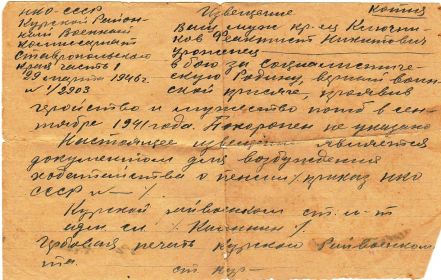 НКО-СССР
Извещение Копия
Курский Район-
ный Военный
комиссариат
Ставропольско
края часть 1
29 марта 1946 г.
№ 1/2903
Ваш муж кр-ец Ключни-
ков Феоктист Никитович
уроженец
В бою за социалистиче-
скую Родину, верный воин-
ской присяге, проявив
геройство и мужество погиб в сен-
тябре 1941 года. Похоронен не указано
Настоящее извещение является
документом для возбуждения
ходатайства о пенсии / приказ НКО
СССР № - /.
Курской райвоенком ст. л-т
адм. сл. / Калинин /.
Гербовая печать Курской Райвоенком
та.
ст. Кур-